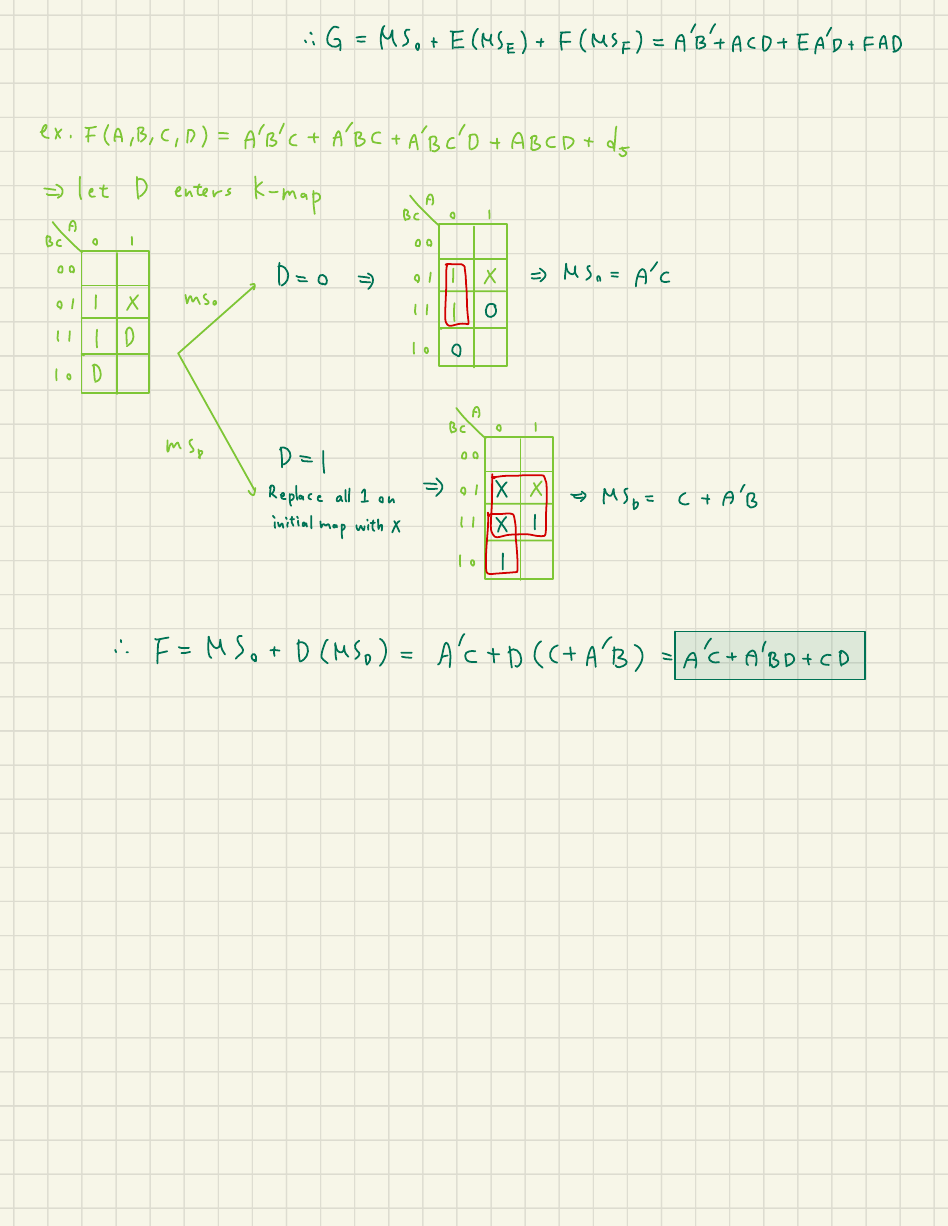 ∴ G = MS₀ + E(MS_E) + F(MS_F) = A′B′ + ACD + EA′D + FAD
ex. F(A,B,C,D) = A′B′C + A′BC + A′BC′D + ABCD + d₅
⇒ let D enters K-map
A
BC 0 1
00
01 1 X
11 1 D
10 D
MS₀
D = 0 ⇒
A
BC 0 1
00
01 1 X
11 1 0
10 0
⇒ MS₀ = A′C
MS_D
D = 1
Replace all 1 on
initial map with X
⇒
A
BC 0 1
00
01 X X
11 X 1
10 1
⇒ MS_D = C + A′B
∴ F = MS₀ + D(MS_D) = A′C + D(C + A′B) = A′C + A′BD + CD